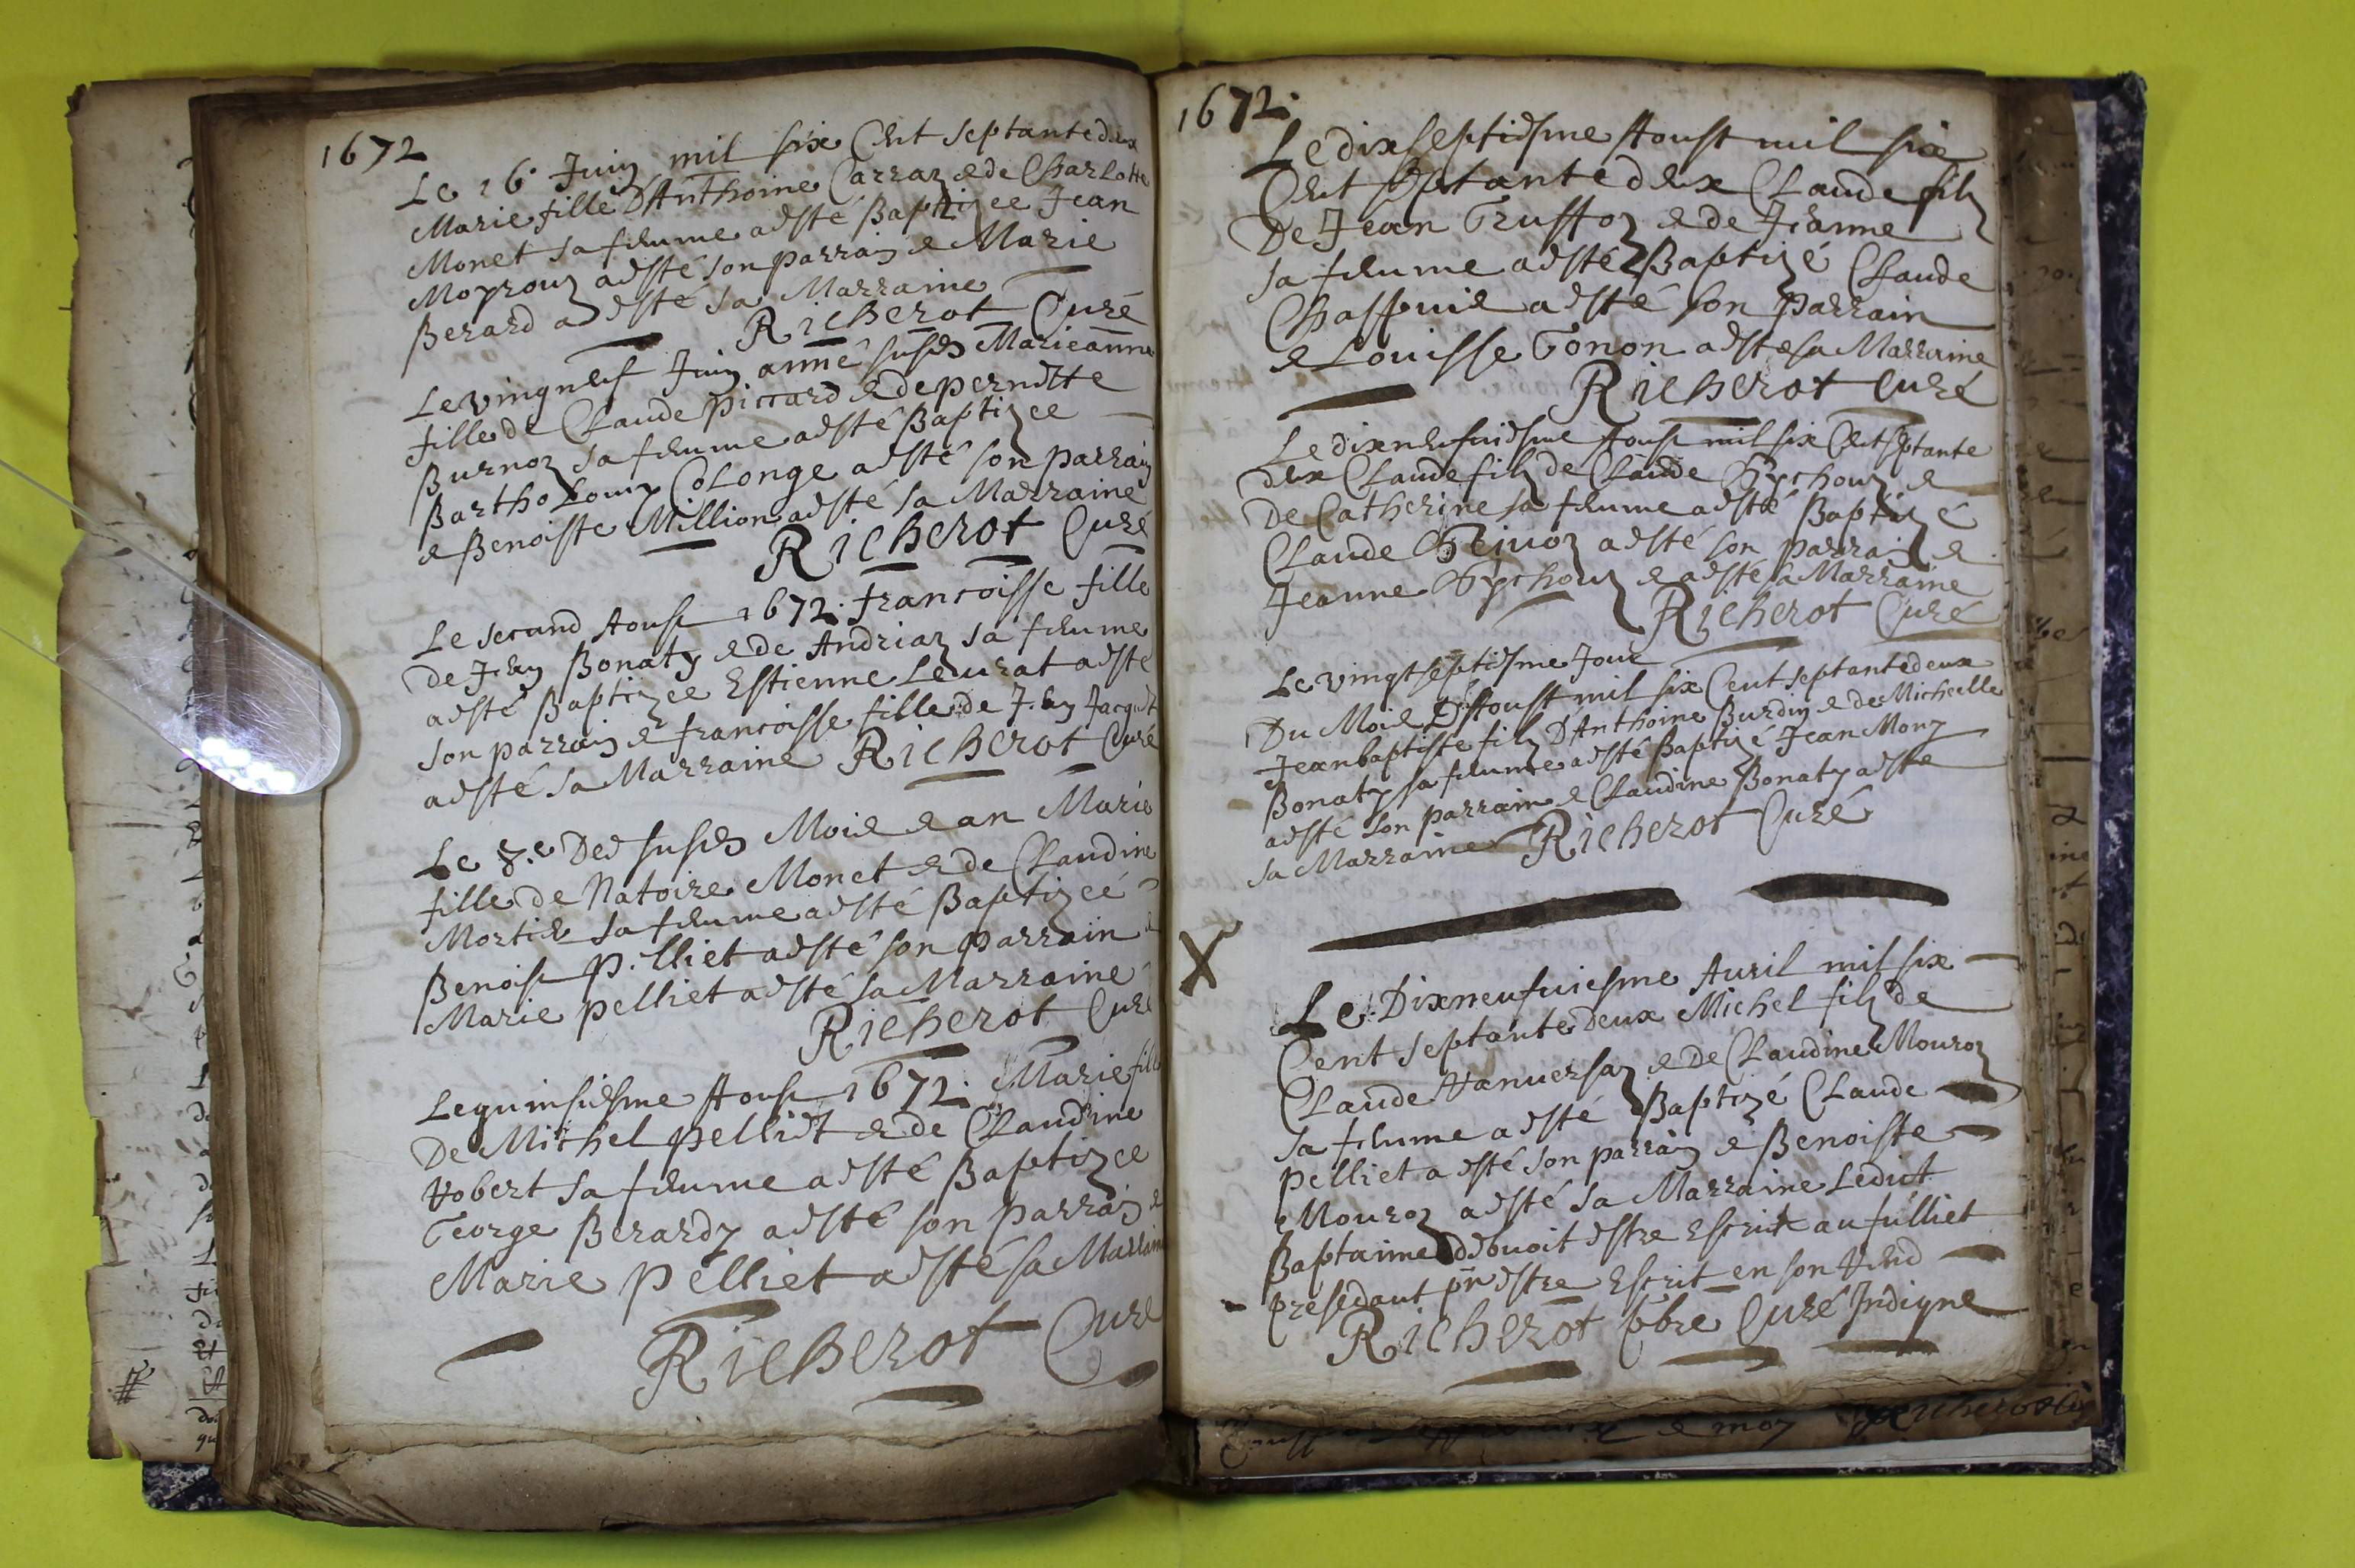 1672
Le 16. Juin mil six Cent septantedeux
Marie fille D'Anthoine Carraz & de Charlotte
Monet sa femme aesté Baptizee Jean
Moyrouz aesté son parrain & Marie
Berard a esté sa Marraine
Richerot Curé
Le vingneuf Juin année susd Marieanne
fille de Claude Piccard & de pernette
Burnoz sa femme aesté Baptizee
Bartholomy Colonge aesté son parrain
& Benoiste Million aesté sa Marraine
Richerot Curé
Le second Aoust 1672. francoisse fille
de Jean Bonaty & de Andriaz sa femme
aesté Baptizee Estienne Leurat aesté
son parrain & francoisse fille de Jean Jacquet
aesté sa Marraine Richerot Curé
Le 8.e Des susd Mois & an Marie
fille de Natoire Monet & de Claudine
Mortier sa femme aesté Baptizeé
Benoist Pelliet aesté son parrain &
Marie pelliet aesté sa Marraine
Richerot Curé
Le quinsiesme Aoust 1672. Marie fille
De Michel pelliet & de Claudine
Hobert sa femme a esté Baptizee
George Berardy aesté son parrain &
Marie Pelliet aesté sa Marraine
Richerot Curé
1672.
Le dixseptiesme Aoust mil six
Cent septante deux Claude filz
De Jean Truffoz & de Jeanne
sa femme aesté Baptizé Claude
Chaffuis aesté son Parrain
& Louisse Tonon aesté sa Marraine
Richerot Curé
Le dixneufuiesme Aoust mil six Cent septante
deux Claude filz de Claude Tychouz &
De Catherine sa femme aesté Baptizé
Claude aesté son parrain &
Jeanne Tychouz & aesté sa Marraine
Richerot Curé
Le vingtseptiesme Jour
Du Mois D'Aoust mil six Cent septantedeux
Jeanbaptiste filz D'Anthoine Burdin & de Michelle
Bonaty sa femme aesté Baptizé Jean Mony
aesté son parrain & Claudine Bonaty aesté
sa Marraine Richerot Curé
X
Le Dixneufuiesme Auril mil six
Cent septante deux Michel filz de
Claude Hanuersaz & De Claudine Mouroz
sa femme a esté Baptizé Claude
pelliet a esté son parrain & Benoiste
Mouroz aesté sa Marraine Ledict
Baptaime debuoit estre Escript au fulliet
presedant pñr estre Escrit en son
Richerot pbre Curé Indigne